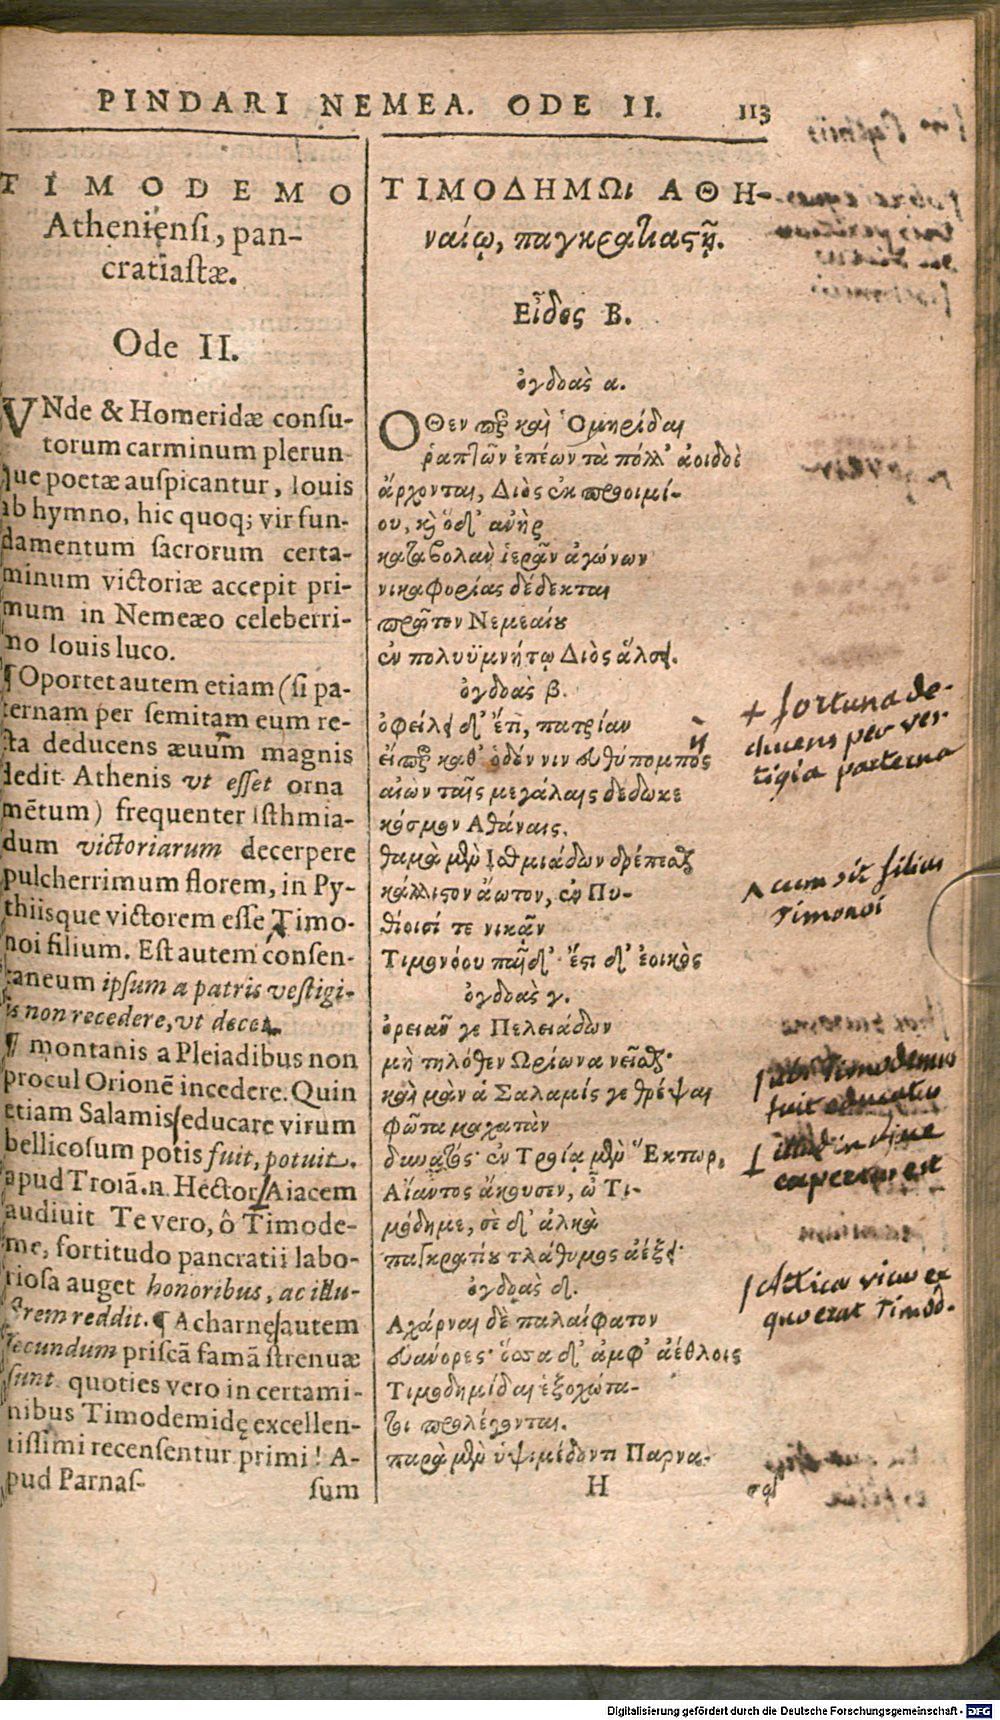 PINDARI NEMEA. ODE II. 113
TIMODEMO
Atheniensi, pan-
cratiastæ.
Ode II.
VNde & Homeridæ consu-
torum carminum plerun
que poetæ auspicantur, Iouis
ab hymno, hic quoq; vir fun-
damentum sacrorum certa-
minum victoriæ accepit pri-
mum in Nemeæo celeberri-
no Iouis luco.
¶ Oportet autem etiam (si pa-
ternam per semitam eum re-
cta deducens æuum magnis
dedit Athenis vt esset orna
mẽtum) frequenter Isthmia-
dum victoriarum decerpere
pulcherrimum florem, in Py-
thiisque victorem esse Timo-
noi filium. Est autem consen-
taneum ipsum a patris vestigi-
is non recedere, vt decet.
¶ montanis a Pleiadibus non
procul Orionẽ incedere. Quin
etiam Salamis educare virum
bellicosum potis fuit, potuit.
apud Troiã .n. Hector Aiacem
audiuit Te vero, ô Timode-
me, fortitudo pancratii labo-
riosa auget honoribus, ac illu-
strem reddit. ¶ Acharnę autem
secundum priscã famã strenuæ
sunt quoties vero in certami-
nibus Timodemidę excellen-
tissimi recensentur primi! A-
pud Parnas-
sum
ΤΙΜΟΔΗΜΩι ΑΘΗ-
ναίῳ, παγκρατιαστῇ.
Εἶδος Β.
ὀγδοὰς α.
ΟΘεν περ καὶ Ὁμηρίδαι
ῥαπτῶν ἐπέων τὰ πόλλ' ἀοιδοὶ
ἄρχονται, Διὸς ἐκ προοιμί-
ου, καὶ ὅδ' ἀνὴρ
καταβολὰν ἱερᾶν ἀγώνων
νικαφορίας δέδεκται
πρῶτον Νεμεαίου
ἐν πολυϋμνήτῳ Διὸς ἄλσει.
ὀγδοὰς β.
ὀφείλει δ' ἔτι, πατρίαν
εἴπερ καθ' ὁδόν νιν εὐθύπομπος
αἰὼν ταῖς μεγάλαις δέδωκε
κόσμον Αθάναις.
θαμὰ μὲν Ισθμιάδων δρέπεσθαι
κάλλιστον ἄωτον, ἐν Πυ-
θίοισί τε νικᾷν
Τιμονόου παῖδ'· ἔστι δ' ἐοικὸς
ὀγδοὰς γ.
ὀρειᾶν γε Πελειάδων
μὴ τηλόθεν Ωρίωνα νεῖσθαι·
καὶ μὰν ἁ Σαλαμίς γε θρέψαι
φῶτα μαχατὰν
δυνατός· ἐν Τροίᾳ μὲν Ἕκτωρ
Αἴαντος ἄκουσεν, ὦ Τι-
μόδημε, σὲ δ' ἀλκὰ
παγκρατίου τλάθυμος ἀέξει·
ὀγδοὰς δ.
Αχάρναι δὲ παλαίφατον
εὐάνορες· ὅσσα δ' ἀμφ' ἀέθλοις
Τιμοδημίδαι ἐξοχώτα-
τοι προλέγονται.
παρὰ μὲν ὑψιμέδοντι Παρνα-
Η
σῷ
+ fortuna de-
ducens per ves
tigia paterna
^ cum sit filius
Timonoi
ubi Timodemus
fuit educatus
Attica vicus ex
quo erat Timod.
Digitalisierung gefördert durch die Deutsche Forschungsgemeinschaft - DFG